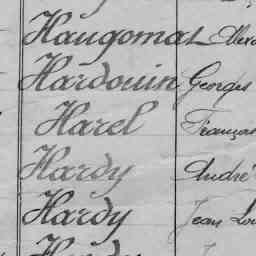 Haugomat Alex
Hardouin Georges
Harel François
Hardy André
Hardy Jean Lou
Hardy